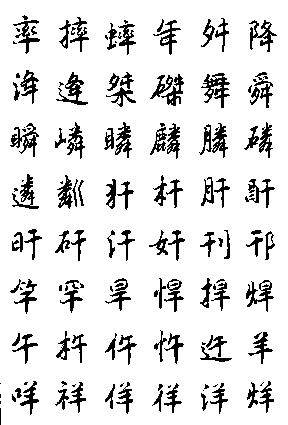 率 摔 蟀 年 舛 降
洚 逄 桀 磔 舞 舜
瞬 嶙 瞵 麟 膦 磷
遴 粼 犴 杆 肝 鼾
旰 矸 汗 奸 刊 邗
竿 罕 旱 悍 捍 焊
午 杵 仵 忤 迕 羊
咩 祥 佯 徉 洋 烊